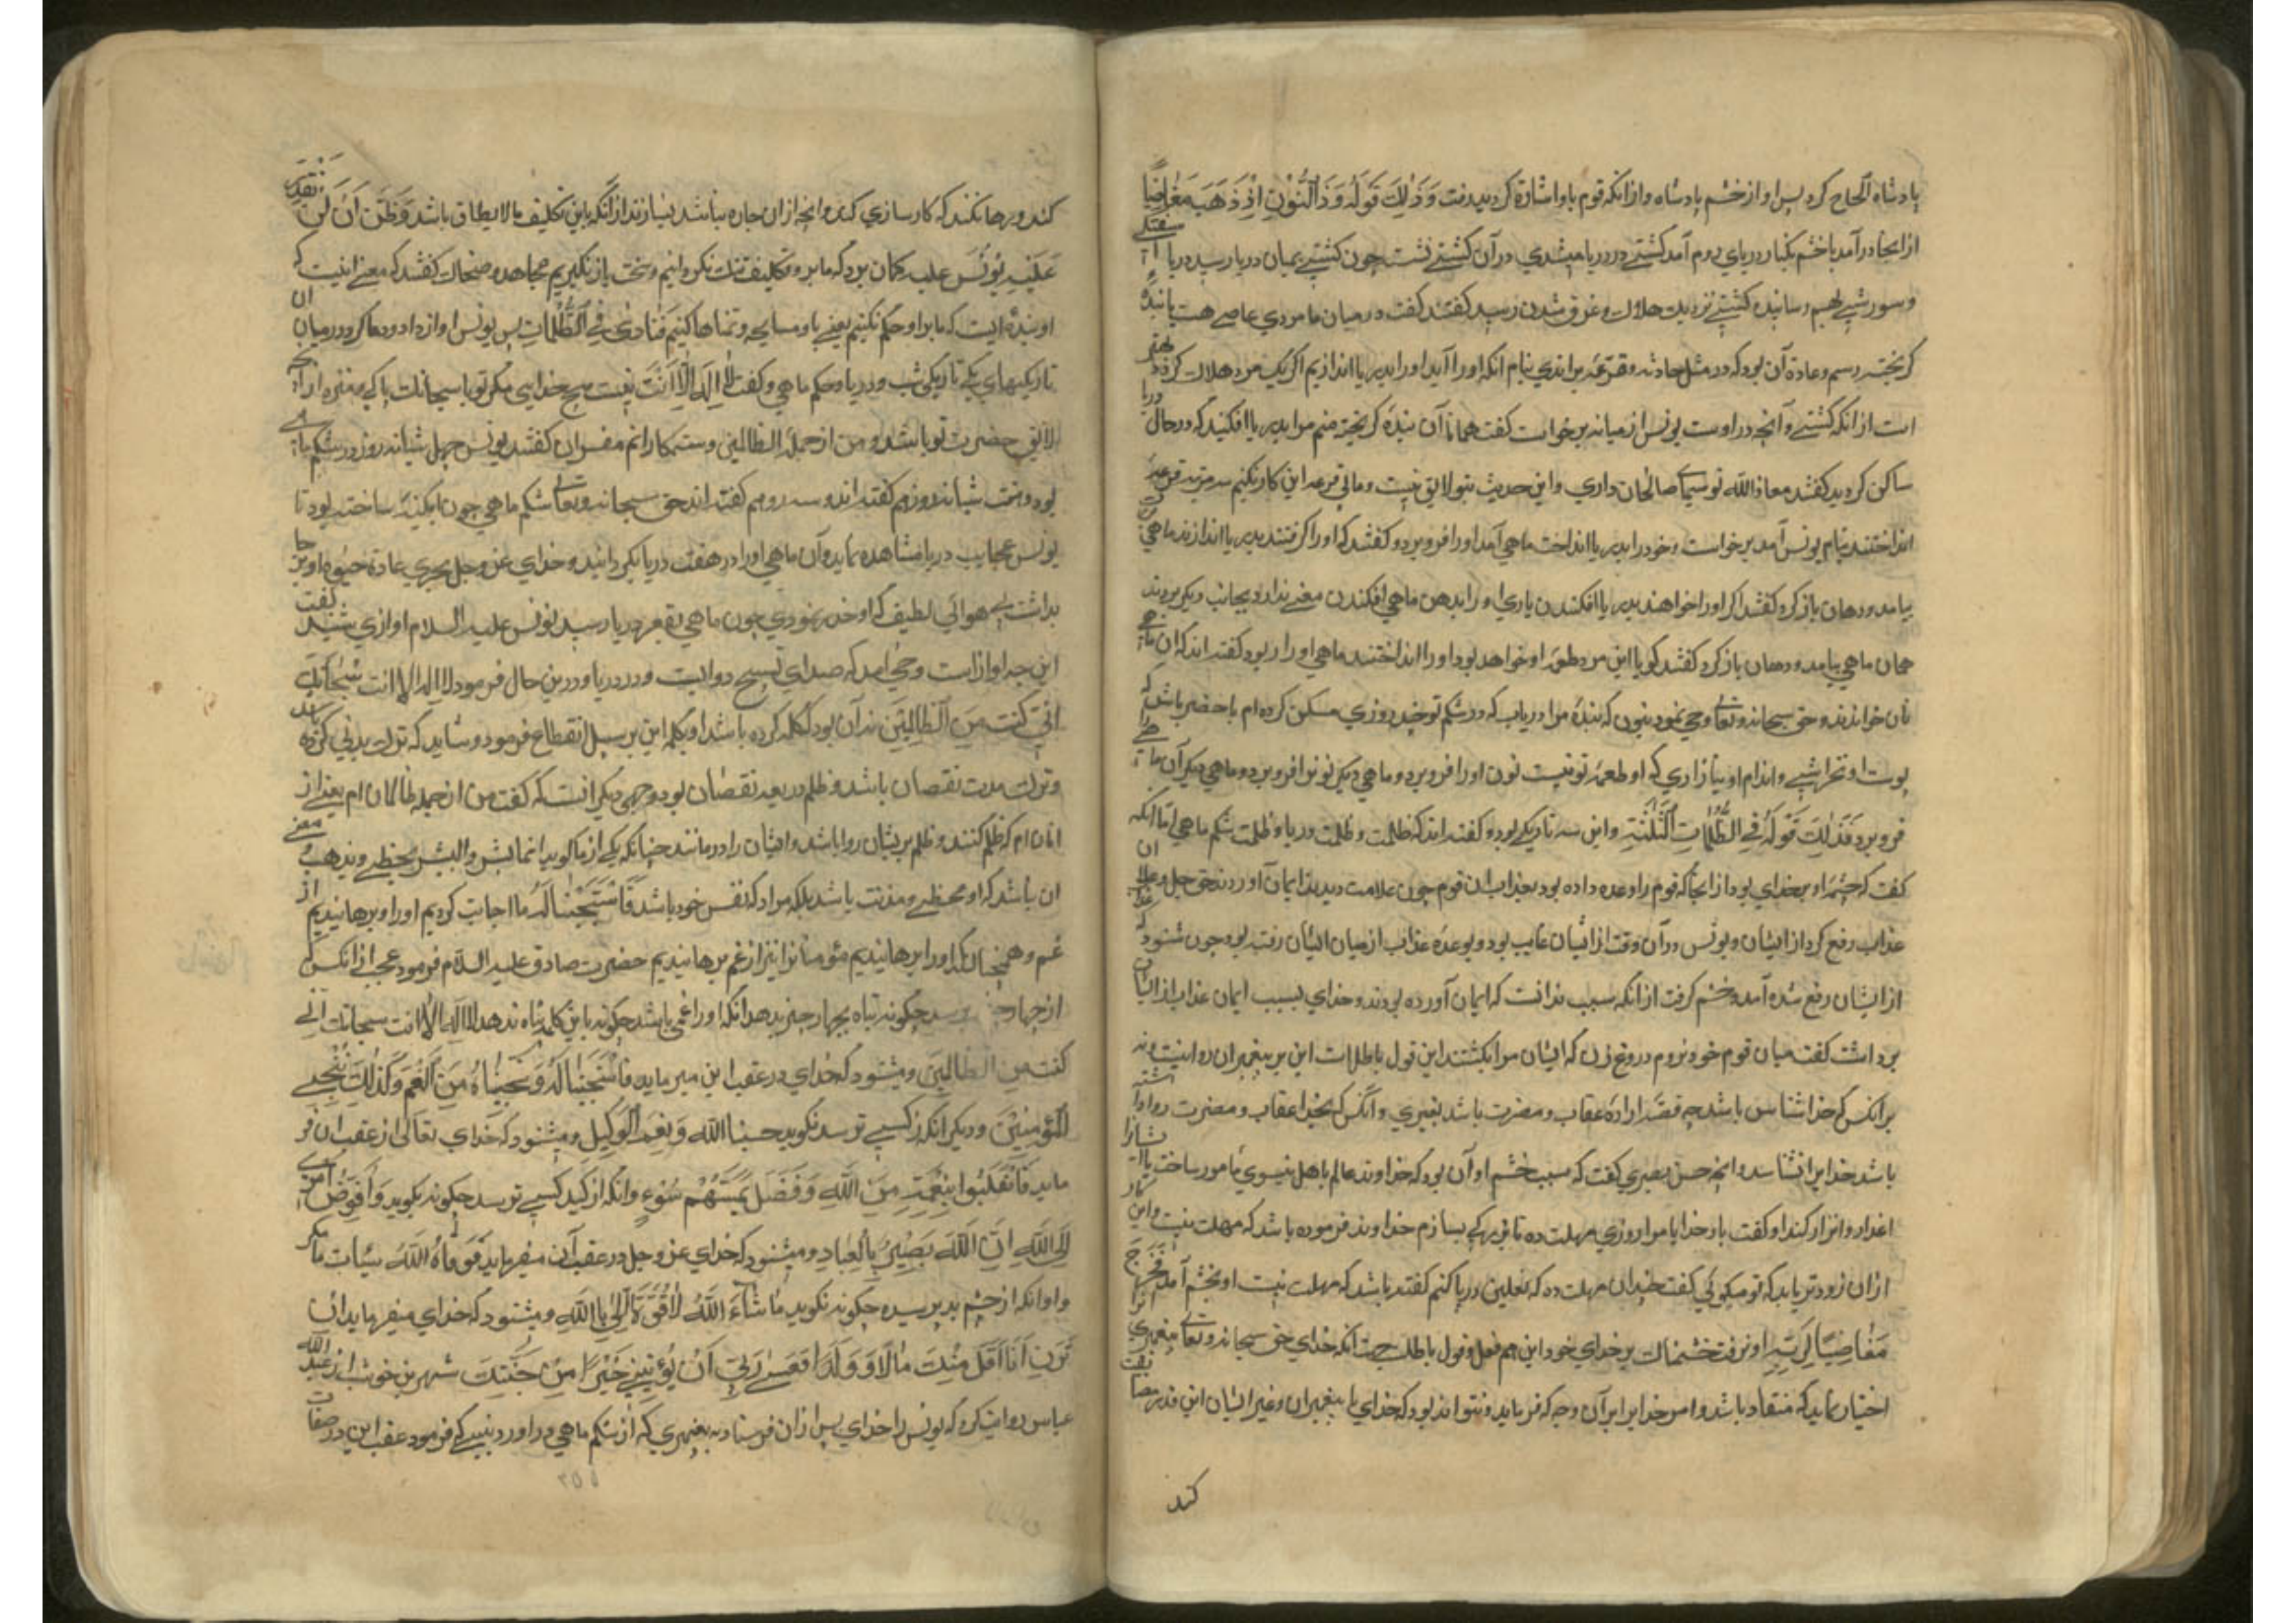 پادشاه الحاح کرد پس او از خشم پادشاه و از انکه قوم باو اشارة کردند برفت وَ ذٰلِكَ قَولُهُ وَذَا النُّوْنِ اِذْ ذَهَبَ مُغَاضِبًا
از انجا در آمد با خشم بکنار دریای روم آمد کشتی در دریا میشدی در آن کشتی نشت چون کشتی بمیان دریا رسید دریا
و سورشی کشتی نزدیک هلاک و غرق شدن رسید کفتند کفت در میان ما مردی عاصی هست یا بندهٔ
کریخته رسم و عادة آن بود که در مثل حادثه قرعه براندی بنام انکه اورا آید اورا بدریا اندازیم اکر یک مرد هلاک کردد بهتر
است از انکه کشتی و آنچه در اوست یونس از میانه برخاست کفت همانا آن بندهٔ کریخته منم مرا بدریا افکنید که در حال دریا
ساکن کردد کفتند معاذ الله تو سیمای صالحان داری و این حدیث بتو لایق نیست و ما بی قرعه این کار نکنیم سه مرتبه قرعه
انداختند بنام یونس آمد برخاست و خود را بدریا انداخت ماهی آمد اورا فرو برد و کفتند که اورا کرفتند بدریا اندازند ماهی
بیامد و دهان باز کرد کفتند اکر اورا خواهند بدریا افکندن باری اورا بدهن ماهی افکندن معنی ندارد بجانب دیکر بردند
همان ماهی بیامد و دهان باز کرد کفتند کویا این مرد طعمهٔ او خواهد بود اورا انداختند ماهی اورا ربود کفته اند که آن ماهی
نان خواندند و حق سبحانه و تعالی وحی نمود بنون که بندهٔ مرا دریاب که در شکم تو چند روزی مسکن کرده ام با حضر باش که
پوست او نخراشی و اندام او نیازاری که او طعمهٔ تو نیست نون اورا فرو برد و ماهی دیکر نون را فرو برد و ماهی دیکر آن ماهی را
فرو برد فَذٰلِكَ قَوْلُهُ فِي الظُّلُمَاتِ الثَّلٰثَةِ و این سه تاریکی بود و کفته اند که ظلمت و ظلمت دریا و ظلمت شکم ماهی اما انکه
کفت که خشم او بر خدای بود از انجا که قوم را وعده داده بود بعذاب ان قوم چون علامت دیدند ایمان آوردند حق جل و علا ان
عذاب رفع کرد از ایشان و یونس در آن وقت از ایشان غایب بود و بوعدهٔ عذاب از میان ایشان رفته بود چون شنود که
از ایشان رفع شده آمد و خشم کرفت از انکه سبب ندانست که ایمان آورده بودند و خدای بسبب ایمان عذاب از ایشان
برداشت کفت میان قوم خود نروم دروغ زن که ایشان مرا بکشتند این قول باطلات این بر پیغمبران روا نیست و نه
بر انکس که خدا شناس باشد چه قصد ارادهٔ عقاب و مضرت باشد بغیری و آنکس که بخدا عقاب و مضرت روا داشته
باشد خدایرا نشناسد و انچه حسن بصری کفت که سبب خشم او آن بود که خداوند عالم باهل نینوی مامور ساخت تا ایشانرا
اعذار و انذار کند او کفت بار خدایا مرا روزی مهلت ده تا من برک بسازم خداوند فرموده باشد که مهلت نیست و این کار
ازان زودتر باید که تو میکوئی کفت چندان مهلت ده که نعلین در پا کنم کفته باشد که مهلت نیست او بخشم آمد فَخَرَجَ
مُغَاضِبًا لِرَبِّهٖ او برفت خشمناک بر خدای خود این هم فعل و قول باطلست جهت آنکه خدای حق سبحانه و تعالی پیغمبری انرا
اختیار نماید که منقاد باشد و امر خدایرا بر آن وجه که فرماید و نتواند بود که خدای با پیغمبران و غیر ایشان این قدر مضایقت
کند
کند و رها نکند که کار سازی کند و انچه ازان چاره نباشد بسازند از انکه باین تکلیف ما لا یطاق باشد وَظَنَّ اَنْ لَنْ نَقْدِرَ
عَلَیْهِ یُونُس علیه کمان برد که ما برو تکلیف تنک نکردانیم و سخت باز نکیریم مجاهد و ضحاک کفتند که معنی انیست که
او بنداشت که ما بر او حکم نکنیم یعنی باو مسامحه و تمناها کنیم فَنَادٰى فِي الظُّلُمَاتِ پس یونس اواز داد و دعا کرد در میان ان
تاریکیهای یکی تاریکی شب و دریا و شکم ماهی و کفت لَا اِلٰهَ اِلَّا اَنْتَ نیست هیچ خدایی مکر تو یا سبحانک پاکی و منزه از انچه
لایق حضرت تو باشد و من از جملهٔ الظالمین و ستمکارانم مفسران کفتند یونس چهل شبانه روز در شکم ماهی
بود و هفت شبانه روز هم کفته اند و سه روز هم کفته اند حق سبحانه و تعالی شکم ماهی چون ابکینه ساخته بود تا
یونس عجایب دریا مشاهده نماید و آن ماهی اورا در هفت دریا بکردانید و خدای عز و جل مجری عادة حیوة او بر جا
بداشت بی هوائی لطیف که او خذ نمودی چون ماهی بقعر دریا رسید یونس علیه السلام اوازی شنید کفت
این چه اوازاست وحی آمد که صدای تسبیح دوابست در دریا و درین حال فرمود لا اله الا انت سبحانک
اِنِّي كُنْتُ مِنَ الظَّالِمِينَ نه آن بود که کله کرده باشد او بلکه این بر سبیل انقطاع فرمود و شاید که ترک ندبی کرده باشد
و ترک مندوب نقصان باشد و ظلم در لغة نقصان بود وجهی دیکر انست که کفت من از جمله ظالمان ام یعنی از
انان ام که ظلم کنند و ظلم بر یشان روا باشد و ایشان را درمانند چنانکه یکی از ما کوید انما بشر و البشر یخطی و یذهب معنی
ان باشد که او مخطی و مذنب باشد بلکه مراد که نفس خود باشد فَاسْتَجَبْنَا لَهُ ما اجابت کردیم اورا و برهانیدیم از
غم و همچنانکه اورا برهانیدیم مؤمنانرا نیز از غم برهانیدیم حضرت صادق علیه السلام فرمود عجب از انکس که
از چهار چیز ترسد چکونه پناه بچهار چیز ندهد انکه اورا غمی باشد چکونه باین کلمه پناه ندهد لا اله الا انت سبحانک انی
كنت من الظالمين و میشنود که خدای در عقب این میفرماید فَاسْتَجَبْنَا لَهُ وَ نَجَّيْنَاهُ مِنَ الْغَمِّ وَكَذٰلِكَ نُنْجِي
الْمُؤْمِنِيْنَ و دیکر انکه از کسی ترسد نکوید حسبنا الله وَ نِعْمَ الْوَكِيْل و میشنود که خدای تعالی از عقب ان فر
ماید فَانْقَلَبُوا بِنِعْمَةٍ مِنَ اللّٰهِ وَ فَضْلٍ لَمْ يَمْسَسْهُمْ سُوْءٌ و انکه از کید کسی ترسد چکونه نکوید وَاُفَوِّضُ اَمْرِي
اِلَى اللّٰهِ اِنَّ اللّٰهَ بَصِيْرٌ بِالْعِبَادِ و میشنود که خدای عز و جل در عقب آن میفرماید فَوَقَاهُ اللّٰهُ سَيِّاٰتِ مَا مَكَرُوا
و انکه از چشم بد بترسد چکونه نکوید مَا شَاءَ اللّٰهُ لَا قُوَّةَ اِلَّا بِاللّٰهِ و میشنود که خدای میفرماید ان
تَرَنِ اَنَا اَقَلَّ مِنْكَ مَالًا وَ وَلَدًا فَعَسٰى رَبِّي اَنْ يُؤْتِيَنِي خَيْرًا مِنْ جَنَّتِكَ شهر بن حوشب از عبد الله
عباس روایت کرد که یونس را خدای پس ازان فرستاد به پیغمبری که از شکم ماهی در اورد نبینی که فرمود عقب این در صفات